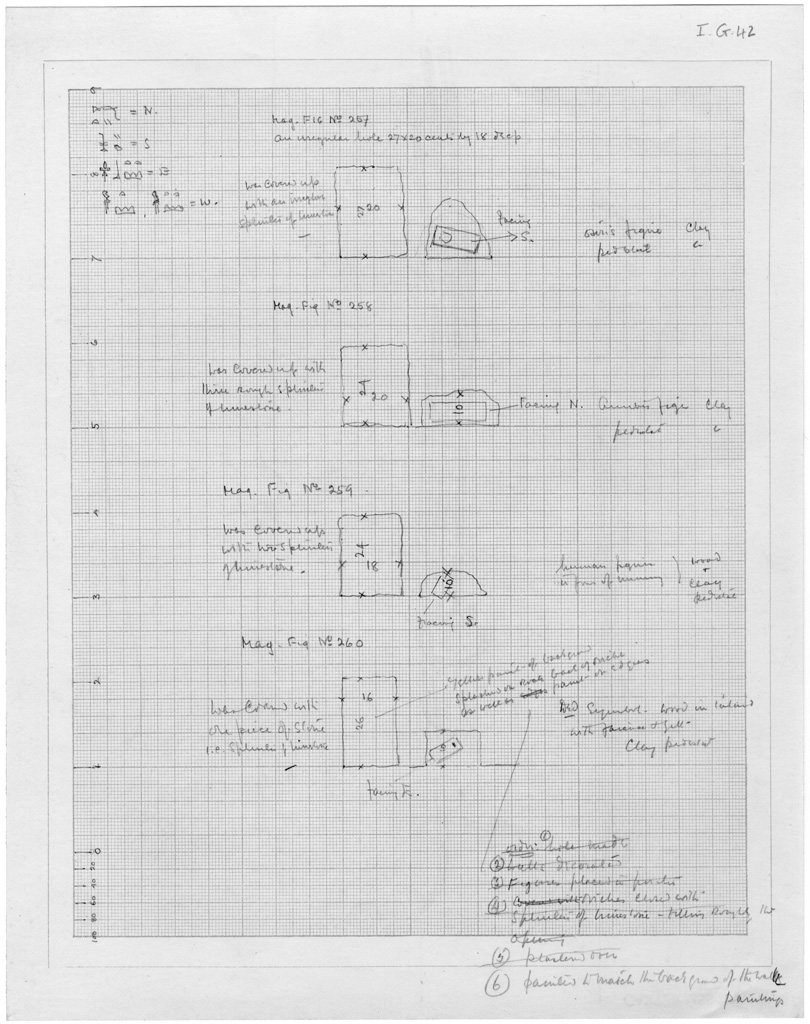 I. G. 42
= N.
= S
= E
= W.
Mag. Fig Nº 257
an irregular hole 27x20 cents by 18 deep
was covered up
with an irregular
splinter of limestone
27
20
facing
S.
osiris figure clay
pedestal "
Mag. Fig Nº 258
was covered up with
three rough splinters
of limestone.
20
10
Facing N. Anubis figure clay
pedestal "
Mag. Fig Nº 259.
was covered up
with two splinters
of limestone.
24
18
10
facing S.
human figure
in form of mummy
wood
+
clay
pedestal
Mag. Fig Nº 260
was covered with
one piece of stone
i.e. splinter of limestone
16
26
yellow paint of background
splashed on rock back of niche
as well as paint on edges
facing E.
Ded Symbol. wood in laid
with faience & gilt
Clay pedestal
7
6
5
4
3
2
1
0
10 20 30 40 50 60 70 80 90 100
order: ① hole made
② walls decorated
③ Figures placed in position
④ niches closed with
splinters of limestone - filling roughly the
opening
⑤ plastered over
⑥ painted to match the background of the wall
paintings